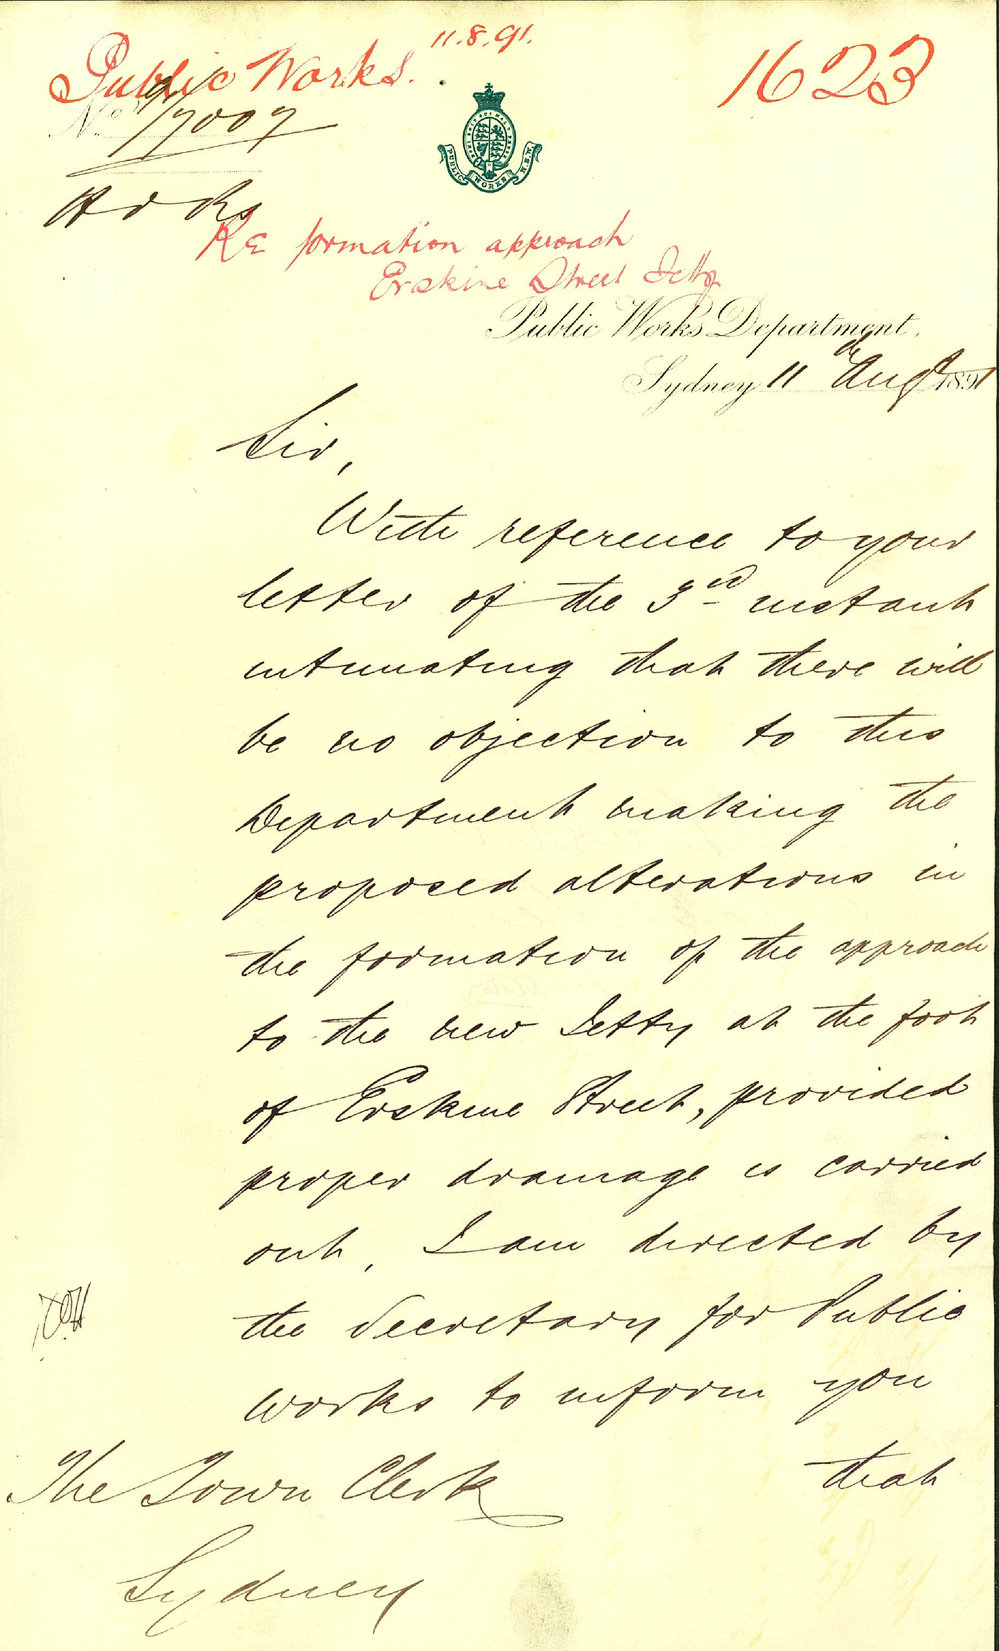 11.8.91.
Public Works.
1623
No. 91/7007
PUBLIC WORKS N.S.W.
Re formation approach
Erskine Street Jetty
Public Works Department,
Sydney 11th Augt 1891
Sir,
With reference to your
letter of the 3rd instant
intimating that there will
be no objection to this
Department making the
proposed alterations in
the formation of the approach
to the new Jetty at the foot
of Erskine Street, provided
proper drainage is carried
out, I am directed by
the Secretary for Public
Works to inform you
that
The Town Clerk
Sydney